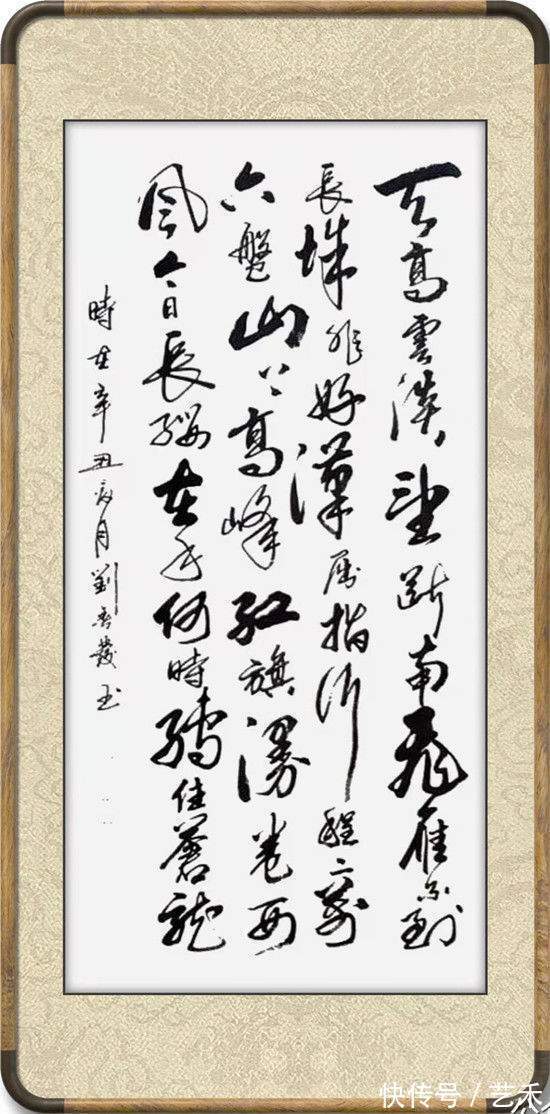 天高雲淡望斷南飛雁不到
長城非好漢屈指行程二萬
六盤山上高峰紅旗漫卷西
風今日長纓在手何時縛住蒼龍
時在辛丑月劉發
快传号 / 艺禾